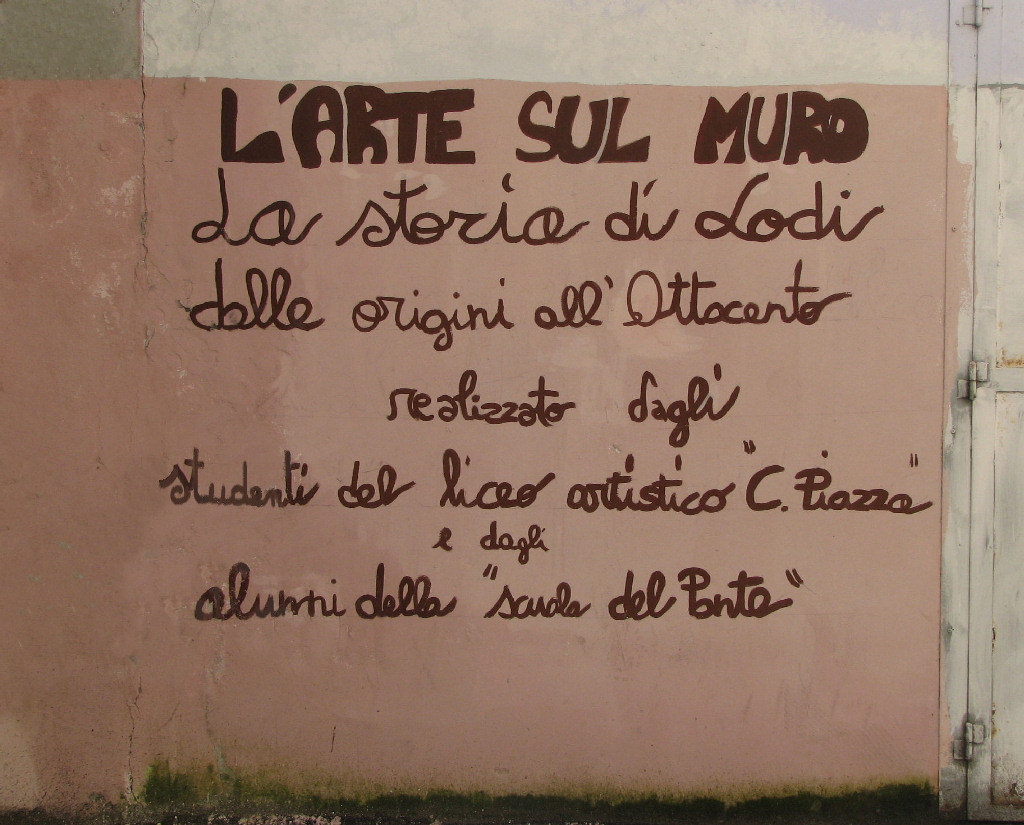 L'ARTE SUL MURO
La storia di Lodi
dalle origini all'Ottocento
realizzato dagli
studenti del liceo artistico "C. Piazza"
e dagli
alunni della "scuola del Ponte"